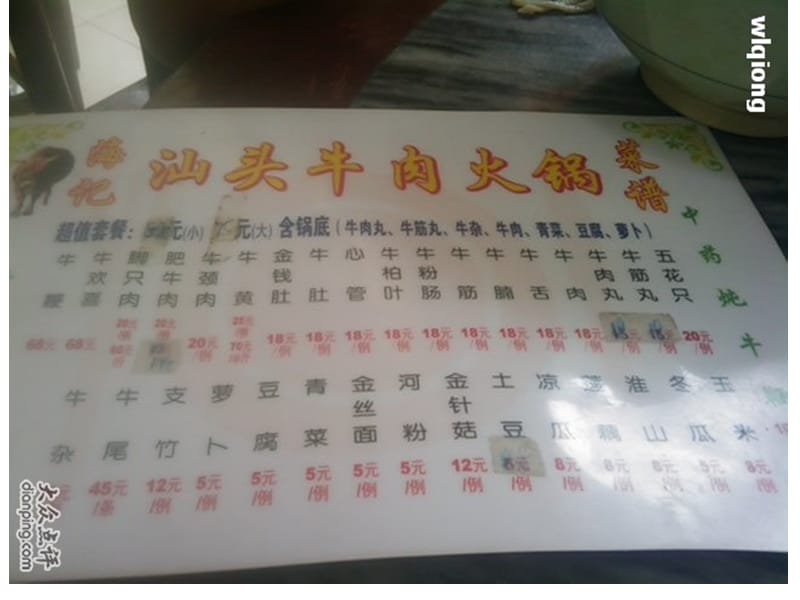 wlqiong
海记
汕头牛肉火锅
菜谱
超值套餐: 元(小) 元(大) 含锅底 (牛肉丸、牛筋丸、牛杂、牛肉、青菜、豆腐、萝卜)
牛鞭 牛欢喜 脚只肉 肥牛肉 牛颈肉 牛黄 金钱肚 牛肚 心管 牛柏叶 牛粉肠 牛筋 牛腩 牛舌 牛肉 牛肉丸 牛筋丸 五花只
68元 68元 20元/例 20元/例 20元/例 18元/例 18元/例 18元/例 18元/例 18元/例 18元/例 18元/例 18元/例 18元/例 20元/例
牛杂 牛尾 支竹 萝卜 豆腐 青菜 金丝面 河粉 金针菇 土豆 凉瓜 莲藕 淮山 冬瓜 玉米
元 45元/条 12元/例 5元/例 5元/例 5元/例 5元/例 5元/例 12元/例 8元/例 8元/例 8元/例 5元/例 8元/例
中药炖牛
大众点评
dianping.com